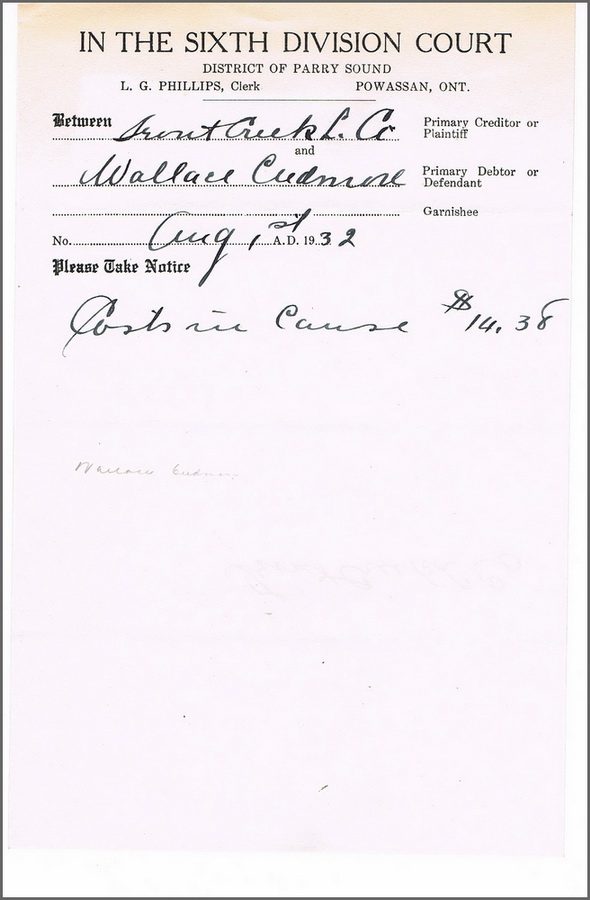 IN THE SIXTH DIVISION COURT
DISTRICT OF PARRY SOUND
L. G. PHILLIPS, Clerk POWASSAN, ONT.
Between Trout Creek L. Co Primary Creditor or Plaintiff
and
Wallace Cudmore Primary Debtor or Defendant
Garnishee
No. Aug 1st A.D. 1932
Please Take Notice
Costs in Cause $14.38
Wallace Cudmore